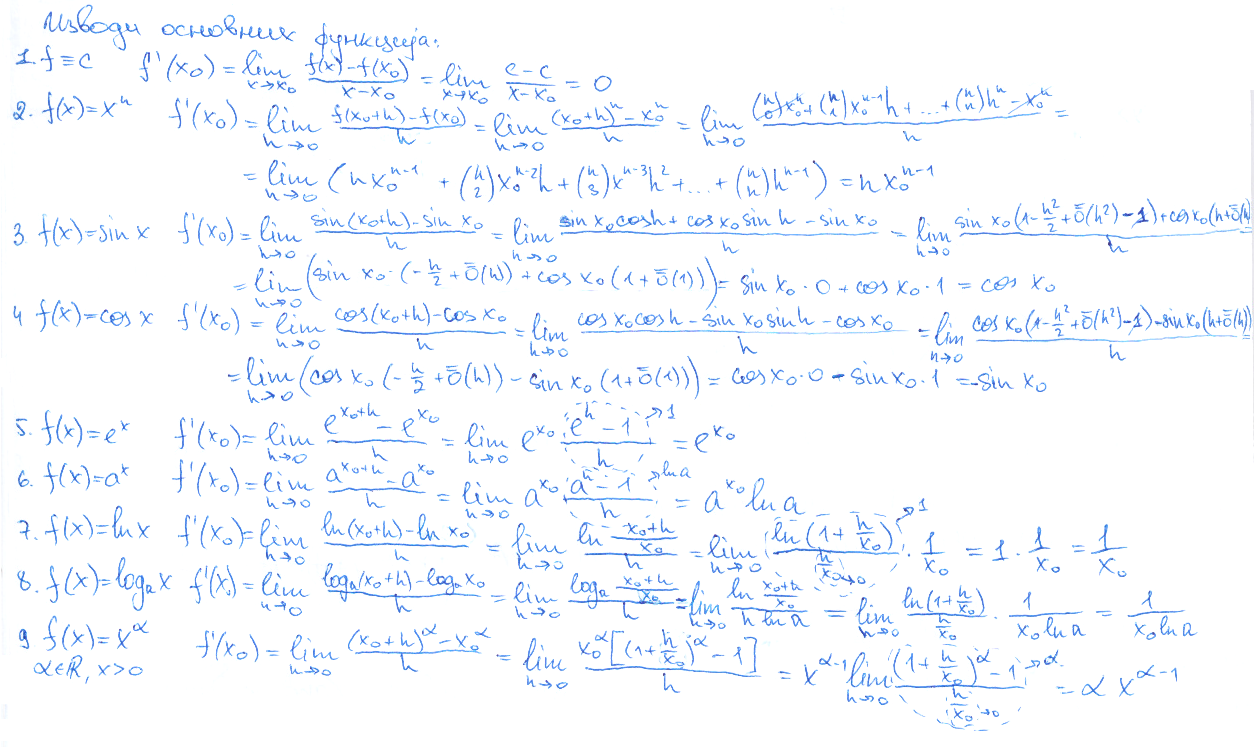 Изводи основних функција:
1. f ≡ c f'(x₀) = lim_{x→x₀} (f(x) - f(x₀))/(x - x₀) = lim_{x→x₀} (c - c)/(x - x₀) = 0
2. f(x) = xⁿ f'(x₀) = lim_{h→0} (f(x₀+h) - f(x₀))/h = lim_{h→0} ((x₀+h)ⁿ - x₀ⁿ)/h = lim_{h→0} ((n 0)x₀ⁿ + (n 1)x₀ⁿ⁻¹h + ... + (n n)hⁿ - x₀ⁿ)/h =
= lim_{h→0} (n x₀ⁿ⁻¹ + (n 2)x₀ⁿ⁻²h + (n 3)xⁿ⁻³h² + ... + (n n)hⁿ⁻¹) = n x₀ⁿ⁻¹
3. f(x) = sin x f'(x₀) = lim_{h→0} (sin(x₀+h) - sin x₀)/h = lim_{h→0} (sin x₀ cos h + cos x₀ sin h - sin x₀)/h = lim_{h→0} (sin x₀(1 - h²/2 + ō(h²) - 1) + cos x₀(h + ō(h)))/h =
= lim_{h→0} (sin x₀ · (-h/2 + ō(h)) + cos x₀ (1 + ō(1))) = sin x₀ · 0 + cos x₀ · 1 = cos x₀
4 f(x) = cos x f'(x₀) = lim_{h→0} (cos(x₀+h) - cos x₀)/h = lim_{h→0} (cos x₀ cos h - sin x₀ sin h - cos x₀)/h = lim_{h→0} (cos x₀(1 - h²/2 + ō(h²) - 1) - sin x₀(h + ō(h)))/h =
= lim_{h→0} (cos x₀ (-h/2 + ō(h)) - sin x₀ (1 + ō(1))) = cos x₀ · 0 - sin x₀ · 1 = -sin x₀
5. f(x) = eˣ f'(x₀) = lim_{h→0} (e^{x₀+h} - e^{x₀})/h = lim_{h→0} e^{x₀} (e^h - 1)/h →1 = e^{x₀}
6. f(x) = aˣ f'(x₀) = lim_{h→0} (a^{x₀+h} - a^{x₀})/h = lim_{h→0} a^{x₀} (a^h - 1)/h →ln a = a^{x₀} ln a
7. f(x) = ln x f'(x₀) = lim_{h→0} (ln(x₀+h) - ln x₀)/h = lim_{h→0} (ln (x₀+h)/x₀)/h = lim_{h→0} (ln(1 + h/x₀))/(h/x₀ →0) →1 · 1/x₀ = 1 · 1/x₀ = 1/x₀
8. f(x) = logₐx f'(x₀) = lim_{h→0} (logₐ(x₀+h) - logₐx₀)/h = lim_{h→0} (logₐ (x₀+h)/x₀)/h = lim_{h→0} (ln (x₀+h)/x₀)/(h ln a) = lim_{h→0} (ln(1 + h/x₀))/(h/x₀) · 1/(x₀ ln a) = 1/(x₀ ln a)
9 f(x) = x^α f'(x₀) = lim_{h→0} ((x₀+h)^α - x₀^α)/h = lim_{h→0} (x₀^α[(1 + h/x₀)^α - 1])/h = x^{α-1} lim_{h→0} ((1 + h/x₀)^α - 1)/(h/x₀ →0) →α = α x^{α-1}
α∈ℝ, x>0